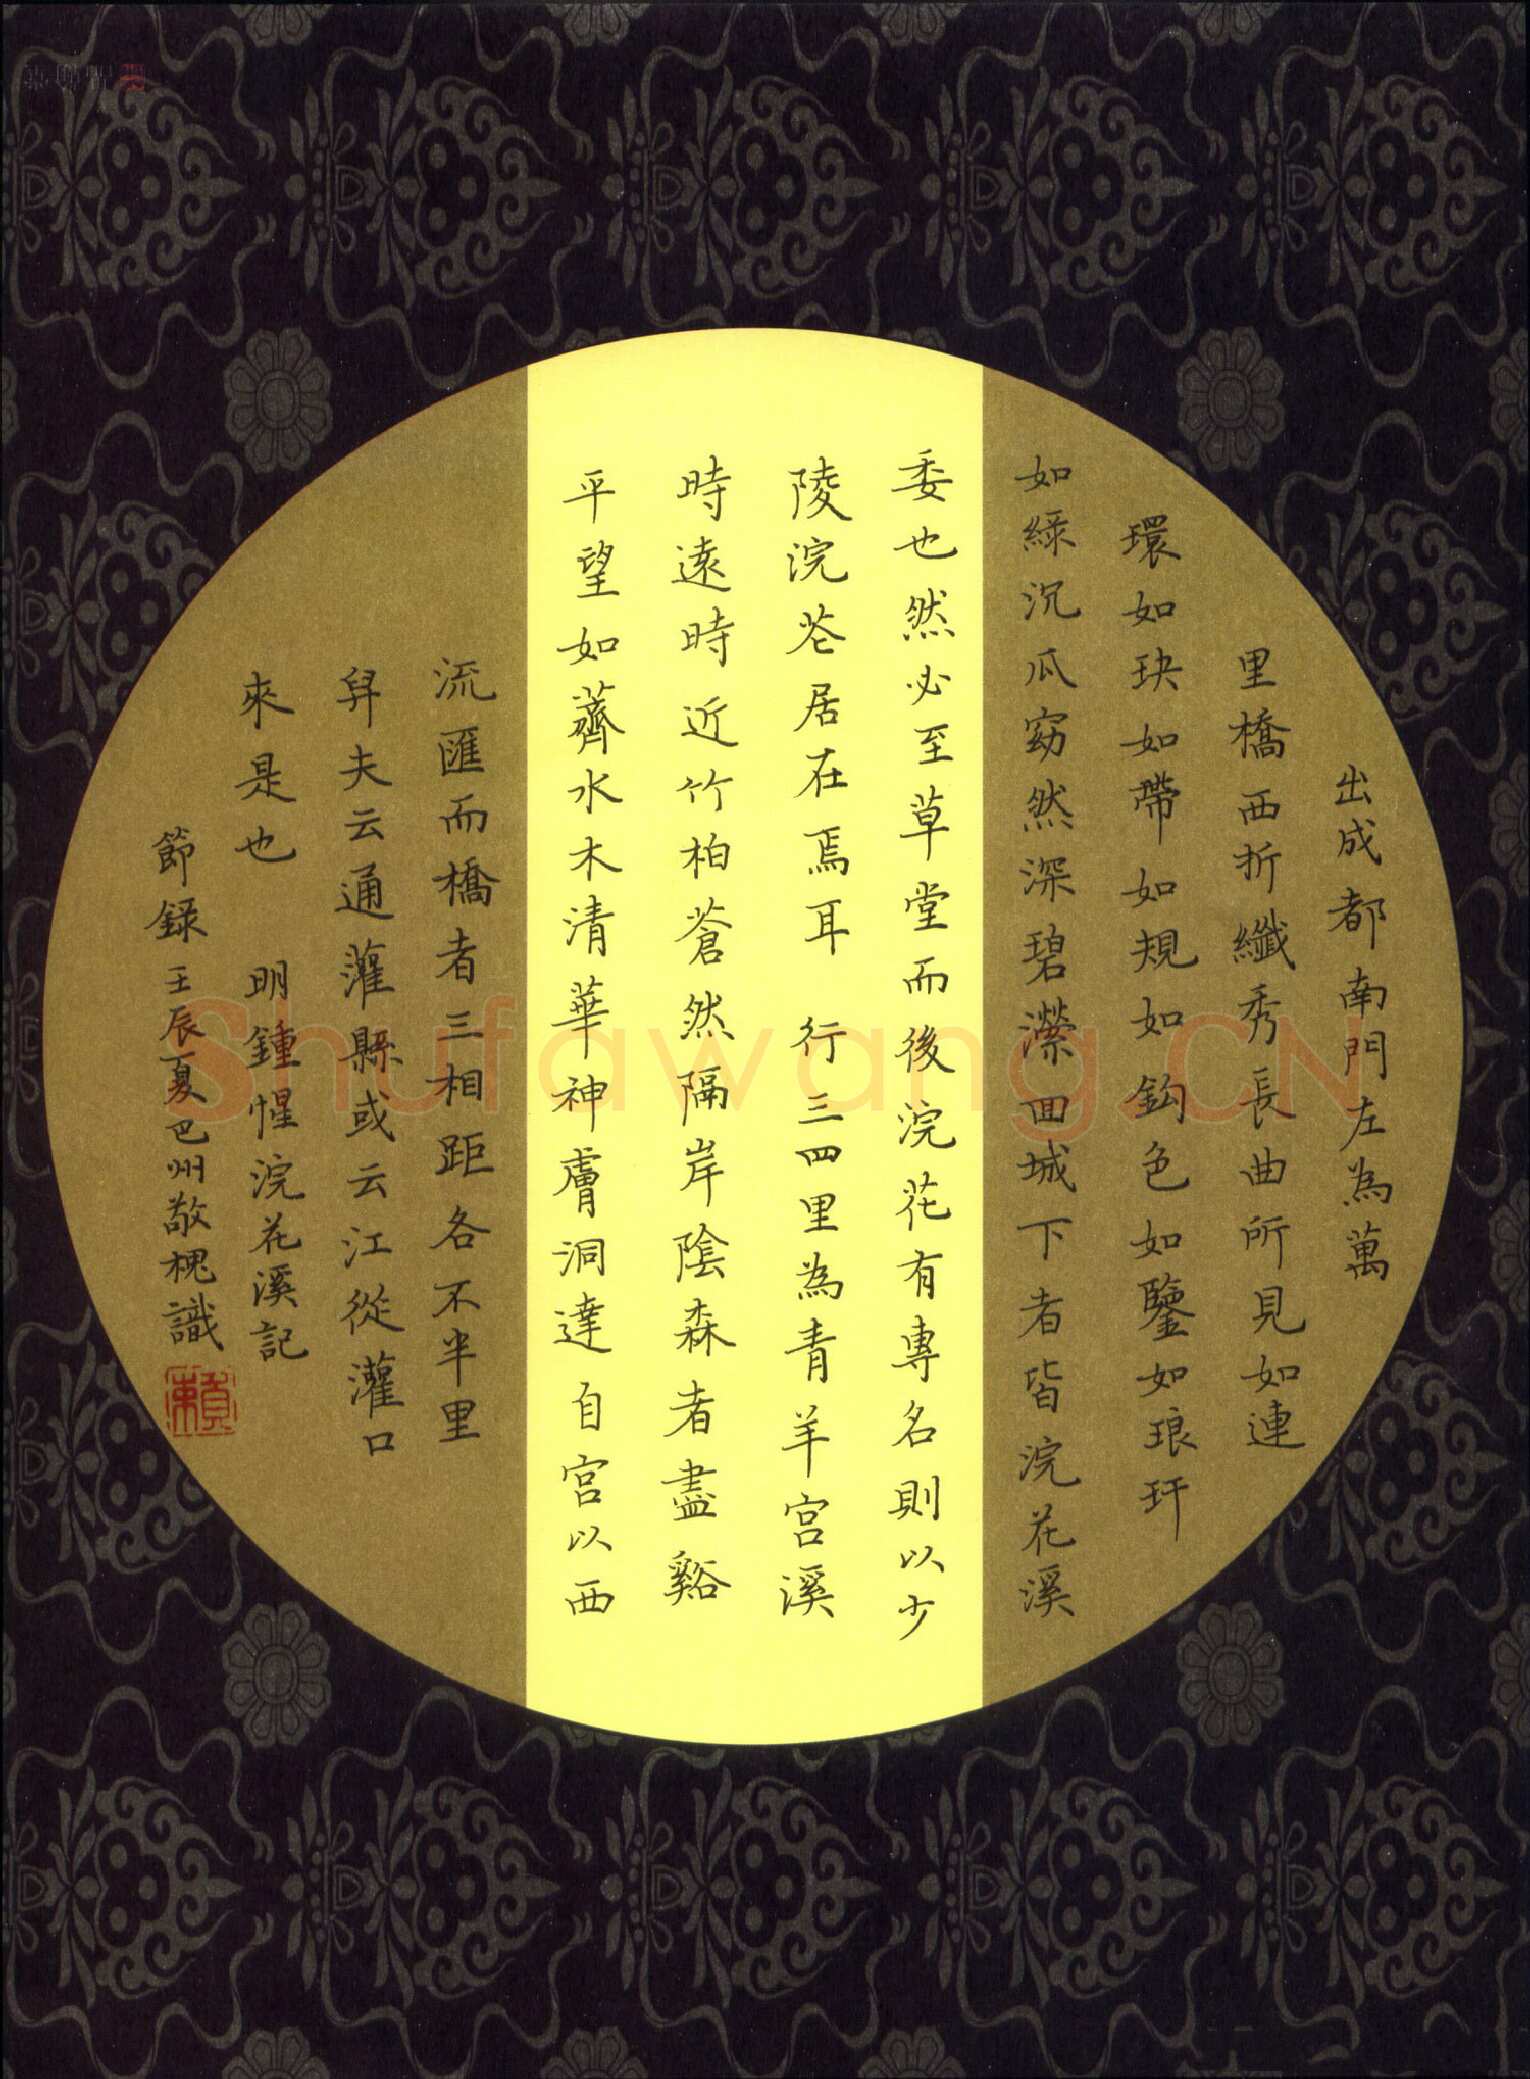 出成都南門左為萬
里橋西折纖秀長曲所見如連
環如玦如帶如規如鈎色如鑒如琅玕
如綠沉瓜窈然深碧瀠回城下者皆浣花溪
委也然必至草堂而後浣花有專名則以少
陵浣花居在焉耳 行三四里為青羊宮溪
時遠時近竹柏蒼然隔岸陰森者盡谿
平望如薺水木清華神膚洞達自宮以西
流匯而橋者三相距各不半里
舁夫云通灌縣或云江從灌口
來是也 明鍾惺浣花溪記
節錄壬辰夏巴州敬槐識
賴
Shufawang.CN